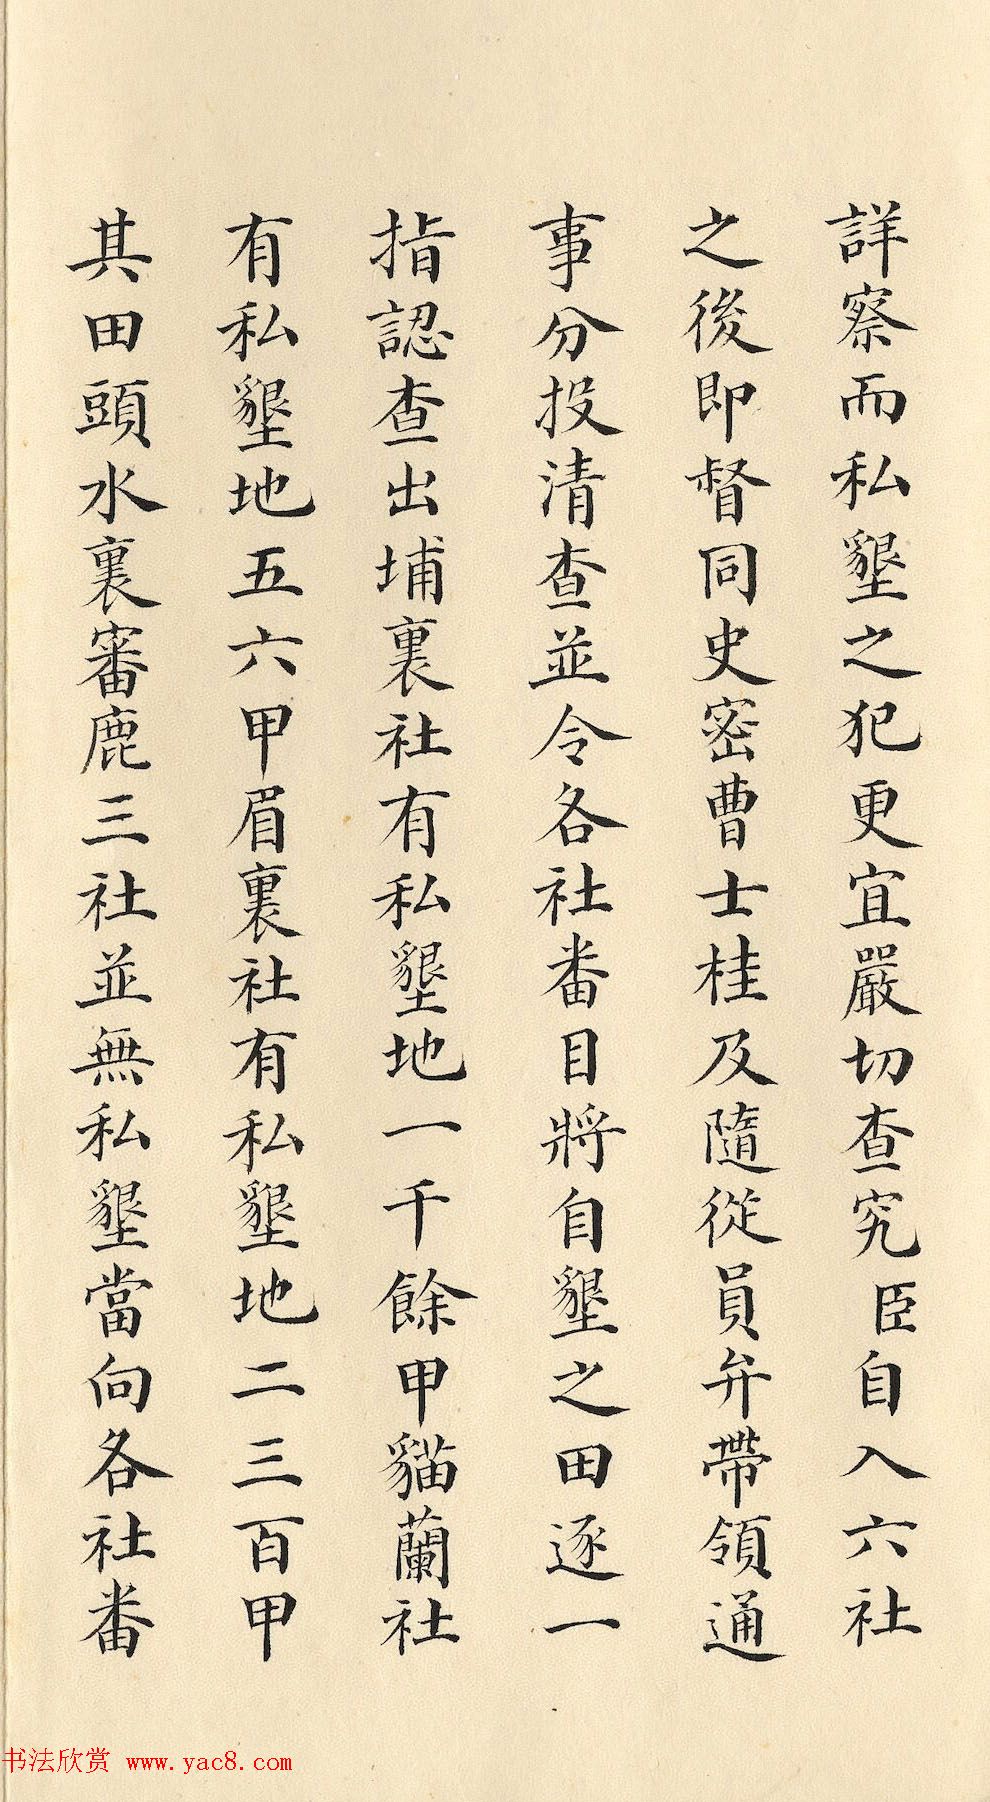 詳察而私墾之犯更宜嚴切查究臣自入六社
之後即督同史密曹士桂及隨從員弁帶領通
事分投清查並令各社番目將自墾之田逐一
指認查出埔裏社有私墾地一千餘甲貓蘭社
有私墾地五六甲眉裏社有私墾地二三百甲
其田頭水裏審鹿三社並無私墾當向各社番
书法欣赏 www.yac8.com